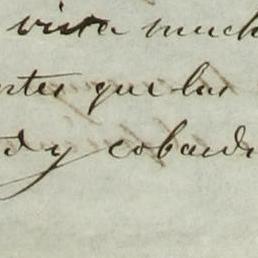 vista much
rtes que las
d y cobard